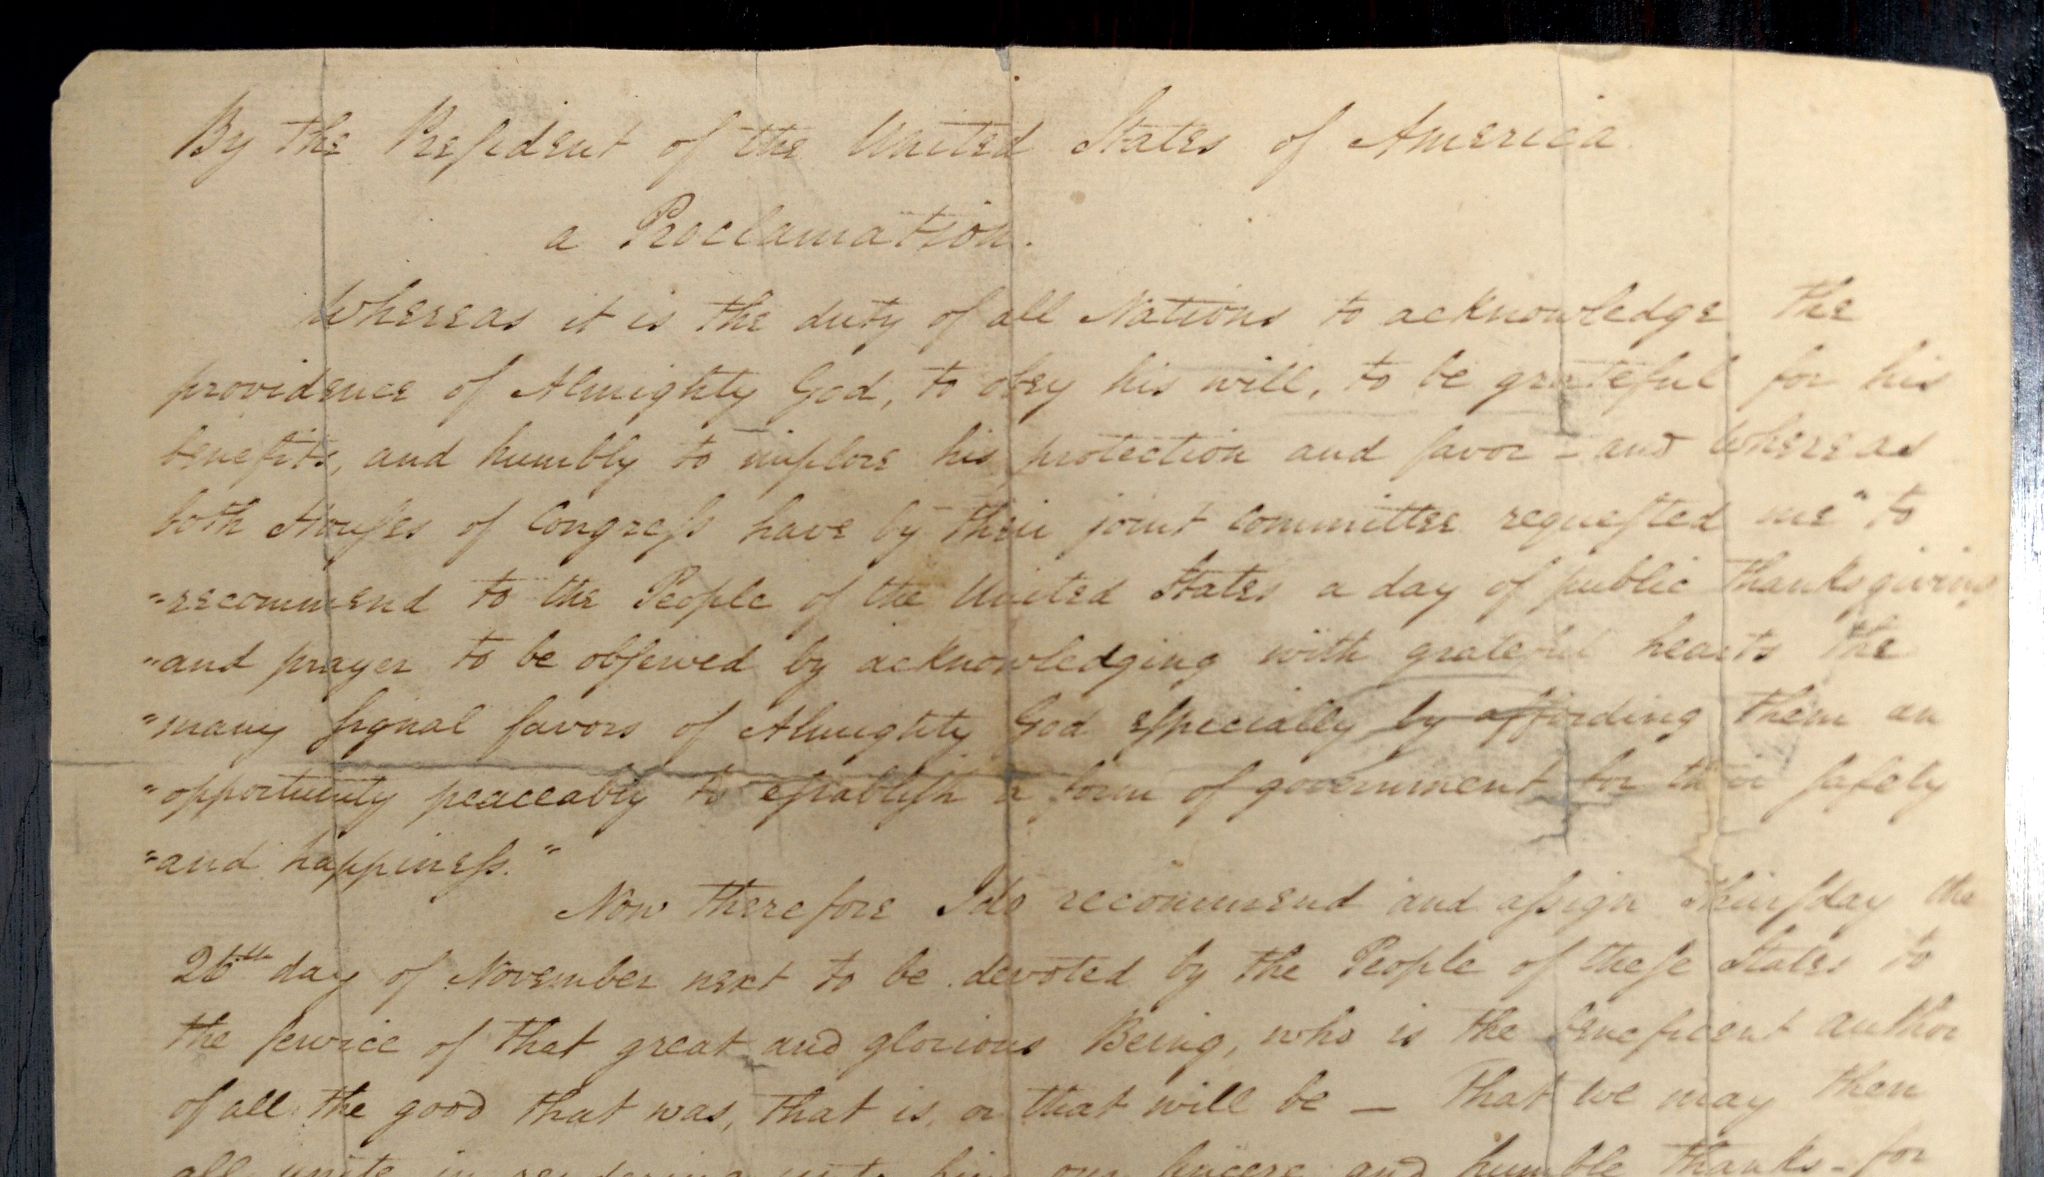 By the President of the United States of America
a Proclamation.
Whereas it is the duty of all Nations to acknowledge the
providence of Almighty God, to obey his will, to be grateful for his
benefits, and humbly to implore his protection and favor – and Whereas
both Houses of Congress have by their joint committee requested me "to
"recommend to the People of the United States a day of public thanksgiving
"and prayer to be observed by acknowledging with grateful hearts the
"many signal favors of Almighty God especially by affording them an
"opportunity peaceably to establish a form of government for their safety
"and happiness."
Now therefore I do recommend and assign Thursday the
26th day of November next to be devoted by the People of these States to
the service of that great and glorious Being, who is the beneficent author
of all the good that was, that is, or that will be – That we may then
all unite in rendering unto him our sincere and humble thanks – for